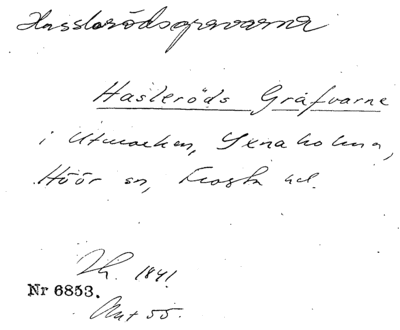 Hasslerödsgravarna
Hasleröds Gräfvarne
i Utmarken, Yxnaholma,
Höör sn, Frosta hd.
Th. 1841.
Nr 6853.
Ant 55.